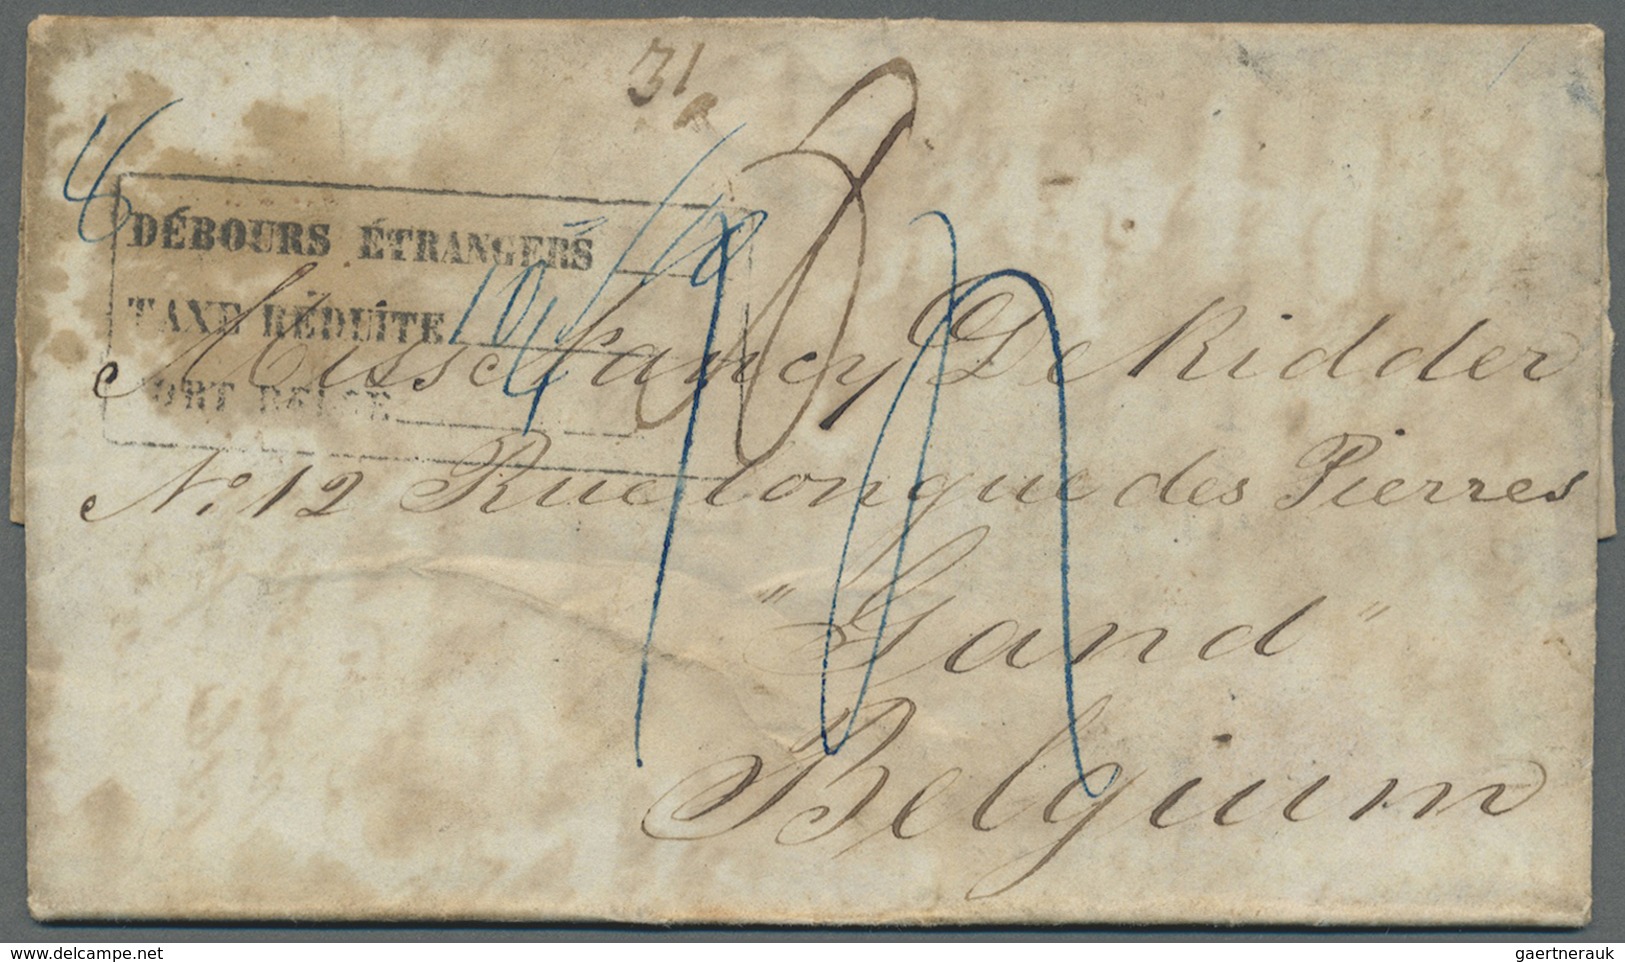 31
DÉBOURS ÉTRANGERS
TAXE RÉDUITE
PORT BELGE
Miss Nancy De Ridder
No. 12 Rue longue des Pierres
"Gand"
Belgium
www.delcampe.net
gaertnerauk